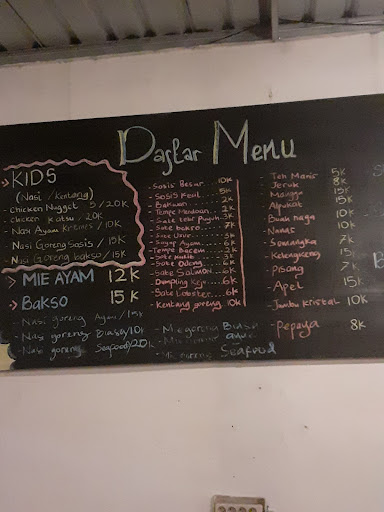 Daftar Menu
KIDS
(Nasi / Kentang)
- Chicken Nugget 5 / 20 K
- chicken katsu / 20K
- Nasi Ayam Krimes / 10 K
- Nasi Goreng Sosis / 15K
- Nasi Goreng bakso / 15K
MIE AYAM 12 K
BAKSO 15 K
- Nasi goreng Ayam / 15K
- Nasi goreng Biasa / 10K
- Nasi goreng Seafood / 20K
- Sosis Besar 10K
- Sosis Kecil 5K
- Bakwan 2K
- Tempe Mendoan 2K
- Sate telor Puyuh 3K
- Sate bakso 7K
- Sate Usus 3K
- Sayap Ayam 6K
- Tempe Bacem
- Sate
- Sate Odeng 6K
- Sate SALMON 6K
- Dumpling Keju 6K
- Sate Lobster 6K
- Kentang goreng 10K
- Mie goreng Biasa
- Mie goreng Ayam
- Mie goreng Seafood
- Teh Manis 5K
- Jeruk 8K
- Mangga 15K
- Alpukat 15K
- Buah naga 10K
- Nanas 10K
- Semangka 7K
- 15K
- Pisang 7K
- Apel 15K
- Jambu Kristal 10K
- Pepaya 8K